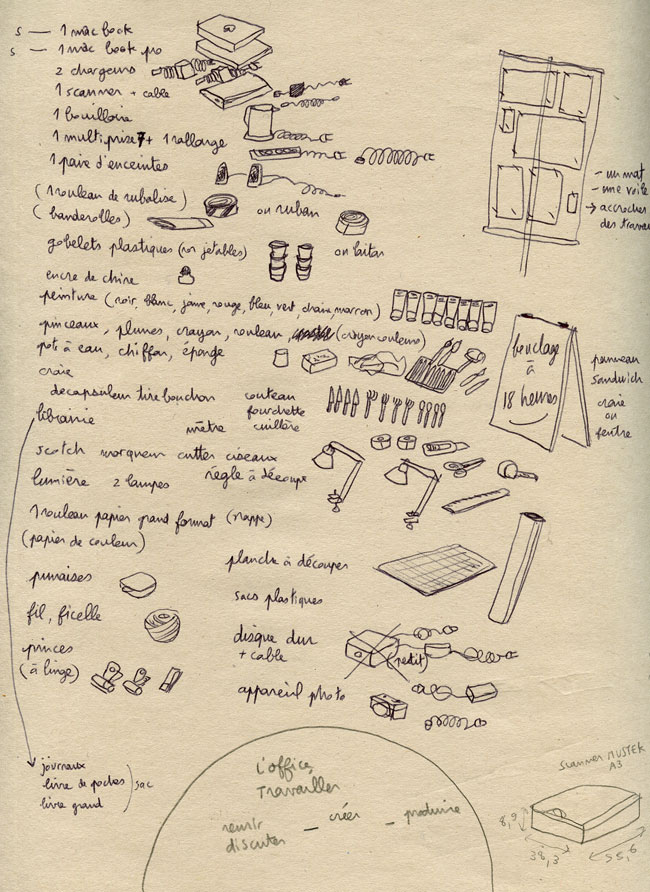 s — 1 mac book
s — 1 mac book pro
2 chargeurs
1 scanner + cable
1 bouilloire
1 multiprise + 1 rallonge
1 paire d'enceintes
(1 rouleau de rubalise)
ou ruban
(banderolles)
gobelets plastiques (non jetables)
ou laiton
encre de chine
peinture (noir, blanc, jaune, rouge, bleu, vert, chair, marron)
pinceaux, plumes, crayon, rouleau, (crayon couleurs)
pots à eau, chiffon, éponge
craie
decapsuleur tire bouchon
couteau
fourchette
cuillère
librairie
mètre
scotch marqueur cutter ciseaux
règle à découpe
lumière 2 lampes
1 rouleau papier grand format (nappe)
(papier de couleur)
planche à découper
punaises
sacs plastiques
fil, ficelle
disque dur
+ cable
(petit)
pinces
(à linge)
appareil photo
journaux
livre de poches
livre grand
sac
- un mat
- une voile
→ accrocher
des travaux
bouclage
à
18 heures
panneau
sandwich
craie
ou
feutre
L'office,
Travailler
reunir
discuter
— créer
— produire
scanner MUSTEK
A3
8,9
38,3
55,6